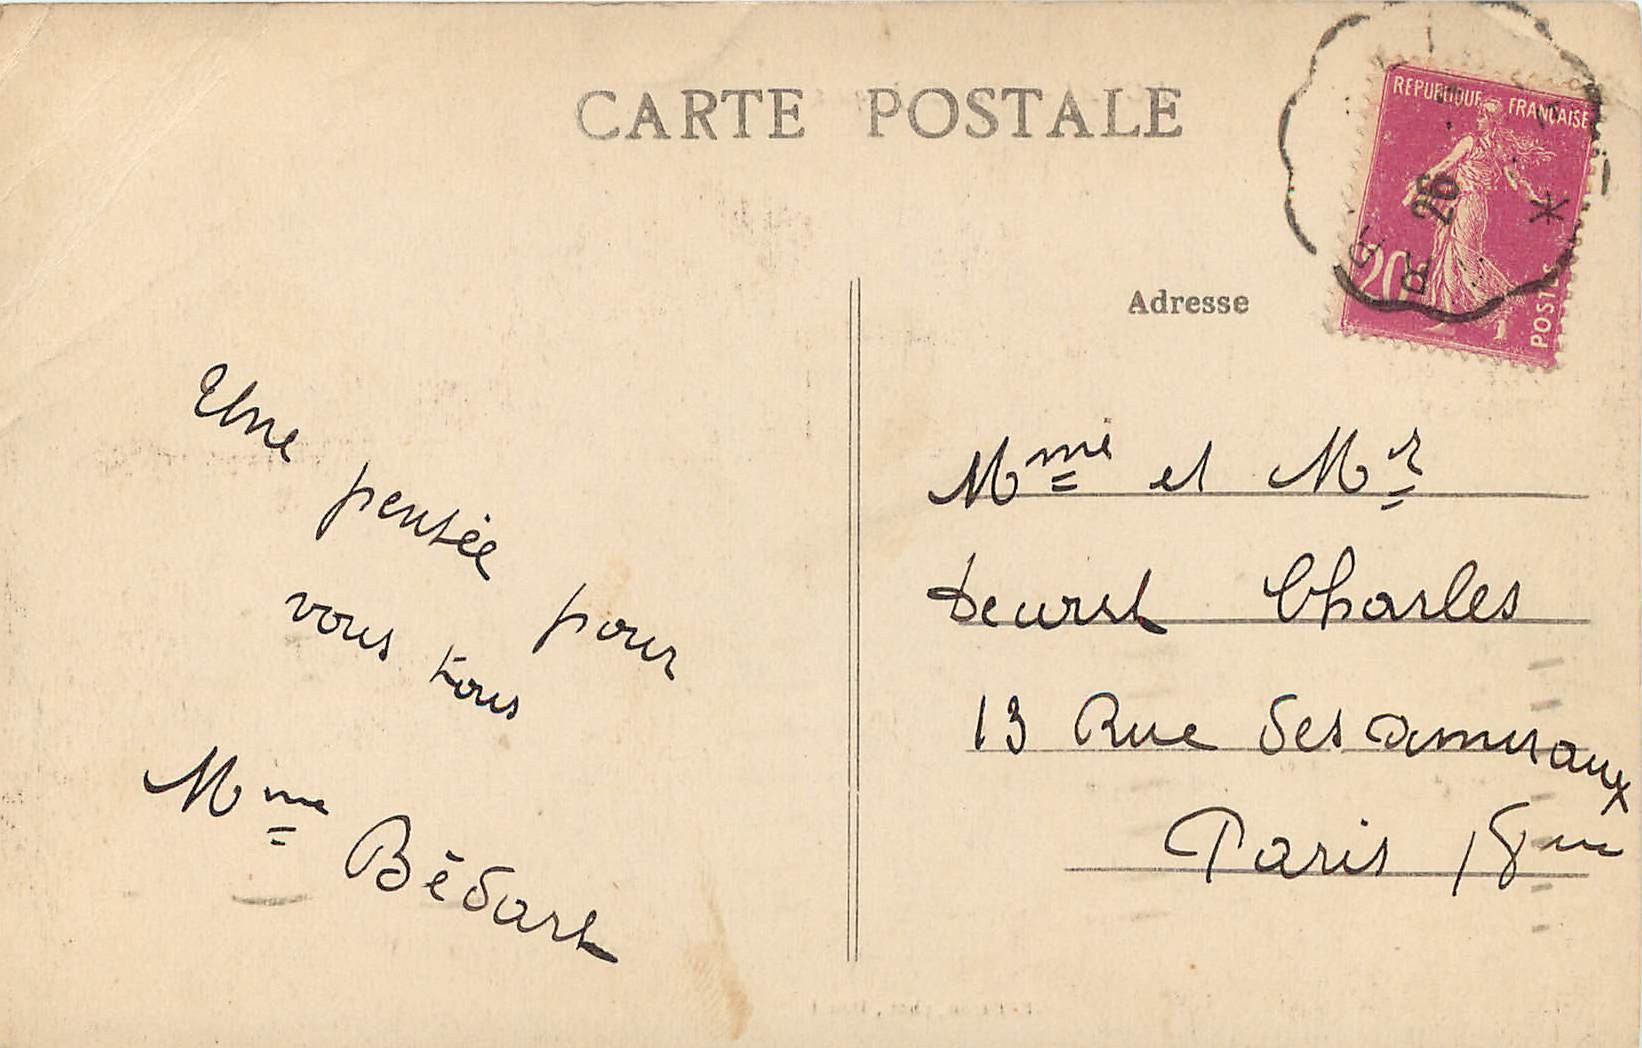 CARTE POSTALE
REPUBLIQUE FRANCAISE
26
20
POSTES
Adresse
Une
pensée pour
vous tous
Mme Bédart
Mme et Mr
Charles
13 Rue des amiraux
Paris 18me